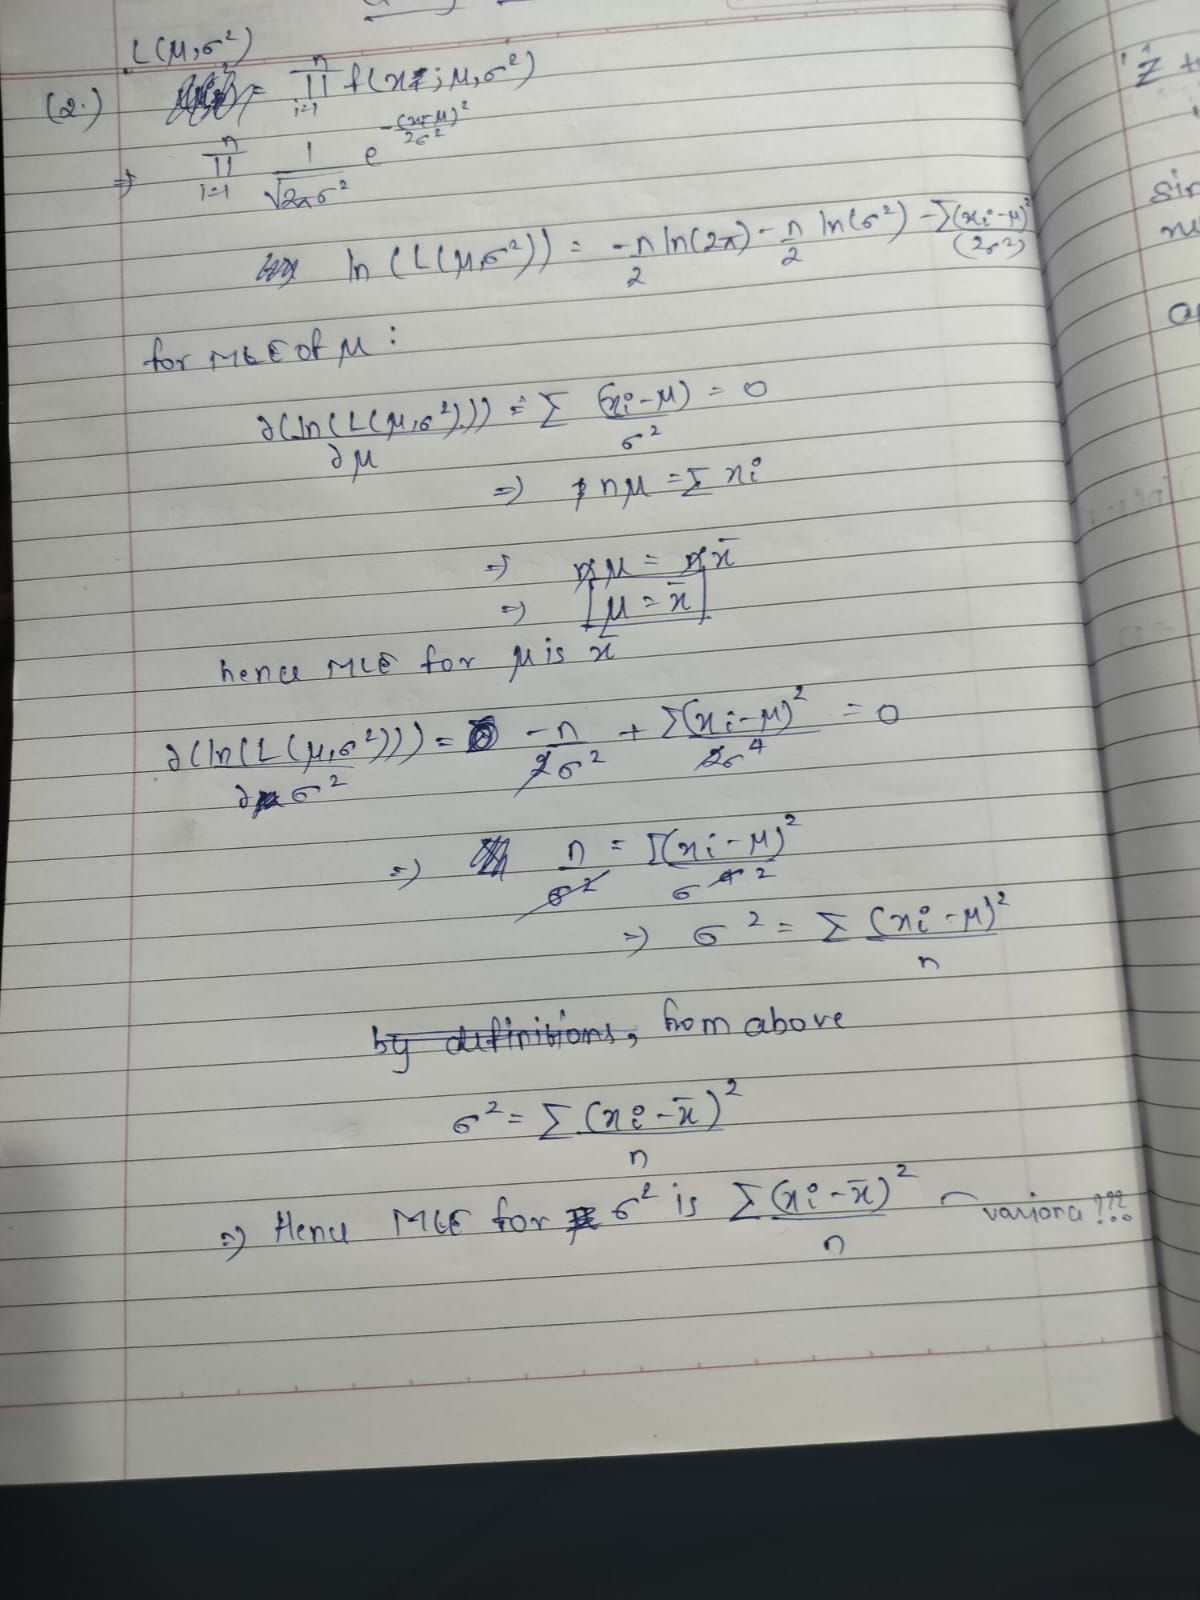 L(μ,σ²)
(2.) = n∏i=1 f(xi; μ,σ²)
⇒ n∏i=1 1/√2πσ² e^-(xi-μ)²/2σ²
ln (L(μ,σ²)) = -n/2 ln(2π) - n/2 ln(σ²) - Σ(xi-μ)²/(2σ²)
for MLE of μ :
∂(ln(L(μ,σ²)))/∂μ = Σ (xi-μ)/σ² = 0
⇒ nμ = Σ xi
⇒ nμ = nx̄
⇒ μ = x̄
hence MLE for μ is x̄
∂(ln(L(μ,σ²)))/∂σ² = -n/2σ² + Σ(xi-μ)²/2σ⁴ = 0
⇒ n/σ² = Σ(xi-μ)²/σ⁴ 2
⇒ σ² = Σ (xi-μ)²/n
by definitions, from above
σ² = Σ (xi-x̄)²/n
⇒ Hence MLE for σ² is Σ(xi-x̄)²/n
Z
sin